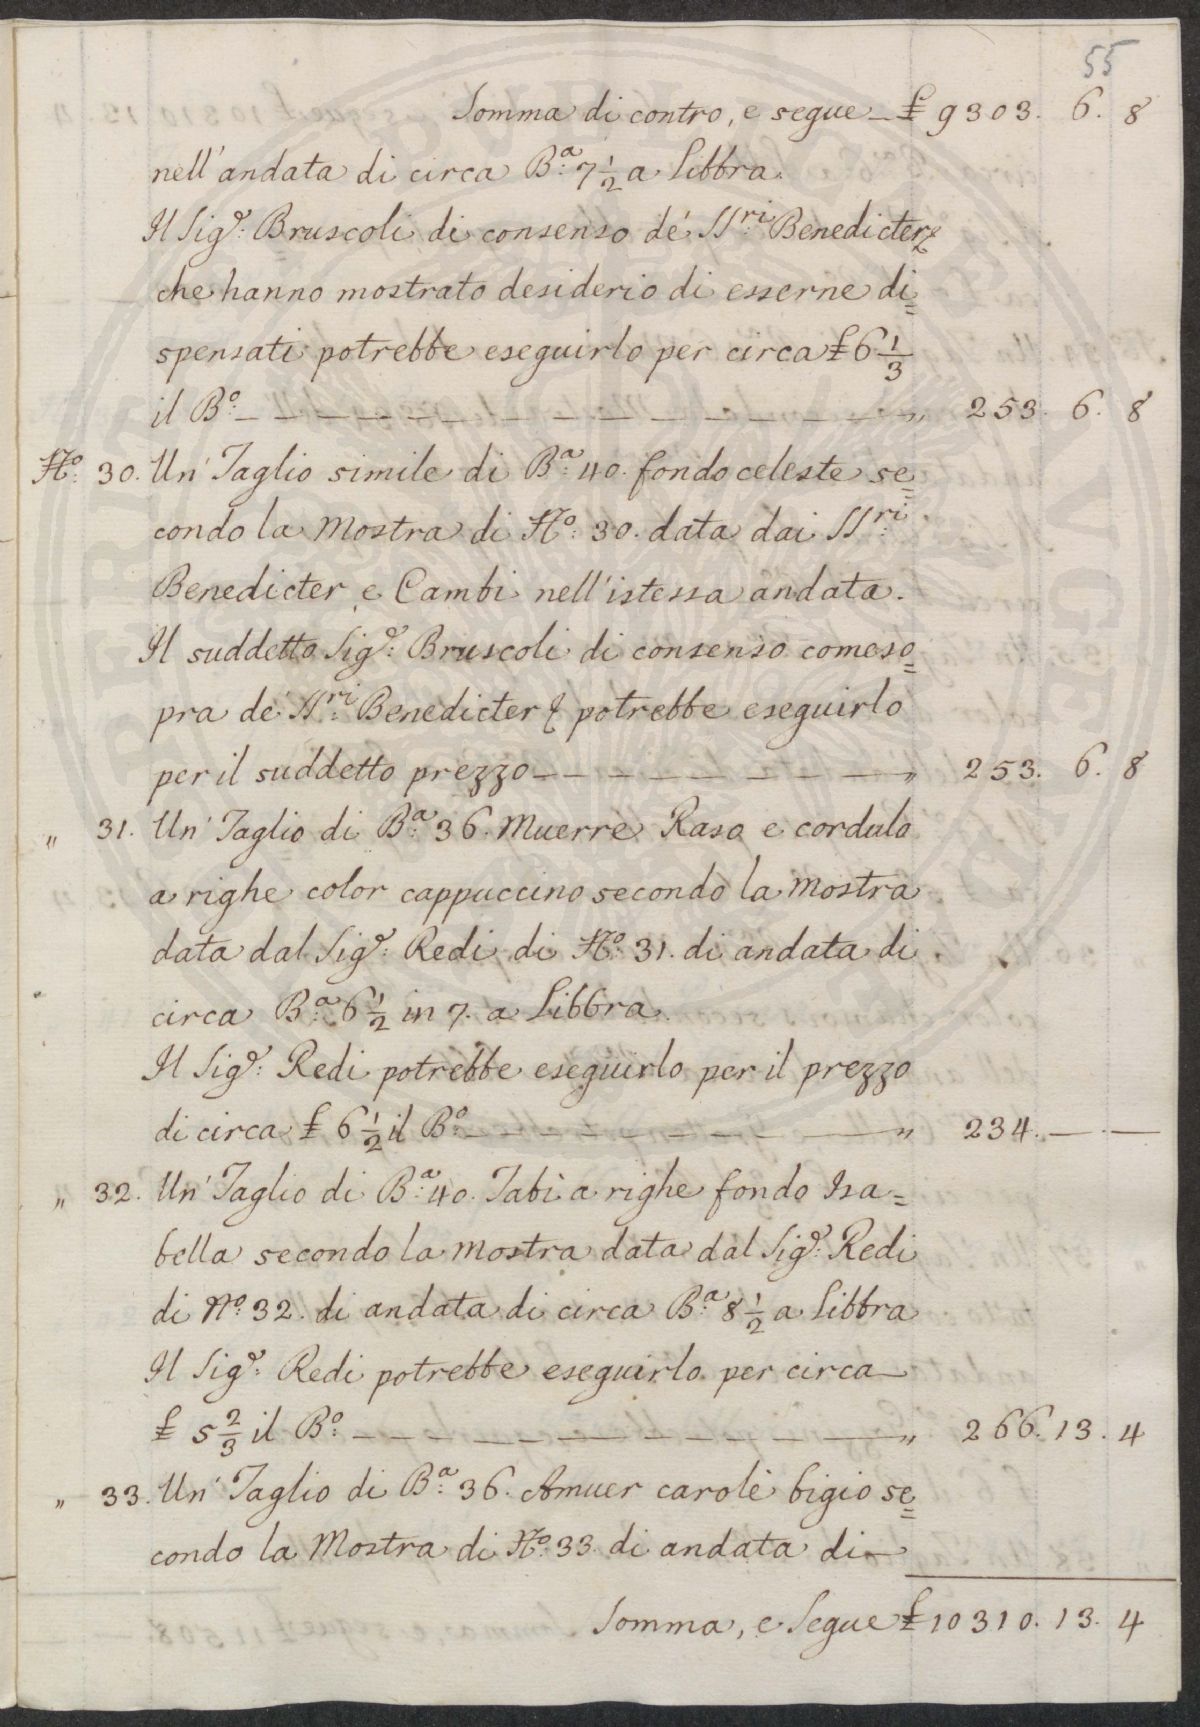 55
Somma di contro, e segue — £ 9303. 6. 8
nell'andata di circa B.ᵃ 7 1/2 a Libbra.
Il Sig.ʳ Bruscoli di consenso de' SS.ʳⁱ Benedicter &
che hanno mostrato desiderio di esserne di=
spensati potrebbe eseguirlo per circa £ 6 1/3
il B.º — — — — — — — — — — " 253. 6. 8
N.º 30. Un' Taglio simile di B.ᵃ 40. fondo celeste se=
condo la Mostra di N.º 30. data dai SS.ʳⁱ
Benedicter e Cambi nell'istessa andata.
Il suddetto Sig.ʳ Bruscoli di consenso come so=
pra de' SS.ʳⁱ Benedicter & potrebbe eseguirlo
per il suddetto prezzo — — — — — — — " 253. 6. 8
" 31. Un' Taglio di B.ᵃ 36. Muerre Raso e cordulo
a righe color cappuccino secondo la Mostra
data dal Sig.ʳ Redi di N.º 31. di andata di
circa B.ᵃ 6 1/2 in 7. a Libbra.
Il Sig.ʳ Redi potrebbe eseguirlo per il prezzo
di circa £ 6 1/2 il B.º — — — — — — — " 234. — . —
" 32. Un' Taglio di B.ᵃ 40. Tabì a righe fondo Isa=
bella secondo la Mostra data dal Sig.ʳ Redi
di N.º 32. di andata di circa B.ᵃ 8 1/2 a Libbra
Il Sig.ʳ Redi potrebbe eseguirlo per circa —
£ 5 2/3 il B.º — — — — — — — — — " 266. 13. 4
" 33. Un' Taglio di B.ᵃ 36. Amuer carolè bigio se=
condo la Mostra di N.º 33. di andata di —
Somma, e Segue £ 10310. 13. 4